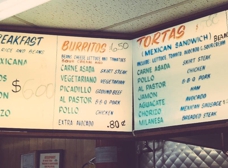 BREAKFAST
RICE AND BEANS
$
BURRITOS 6.50
CARNE ASADA SKIRT STEAK
VEGETARIANO VEGETARIAN
PICADILLO GROUND BEEF
AL PASTOR B-B-Q PORK
POLLO CHICKEN
EXTRA AVOCADO .80¢
TORTAS
(MEXICAN SANDWICH) BEANS
CARNE ASADA SKIRT STEAK
POLLO CHICKEN
AL PASTOR B-B-Q PORK
JAMON HAM
AGUACATE AVOCADO
CHORIZO MEXICAN SAUSAGE
MILANESA BREADED STEAK